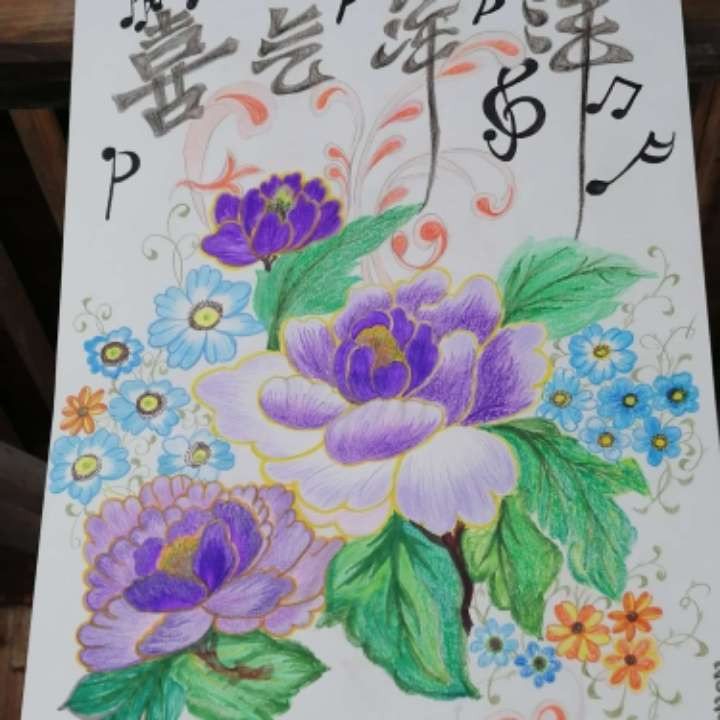 喜气洋洋